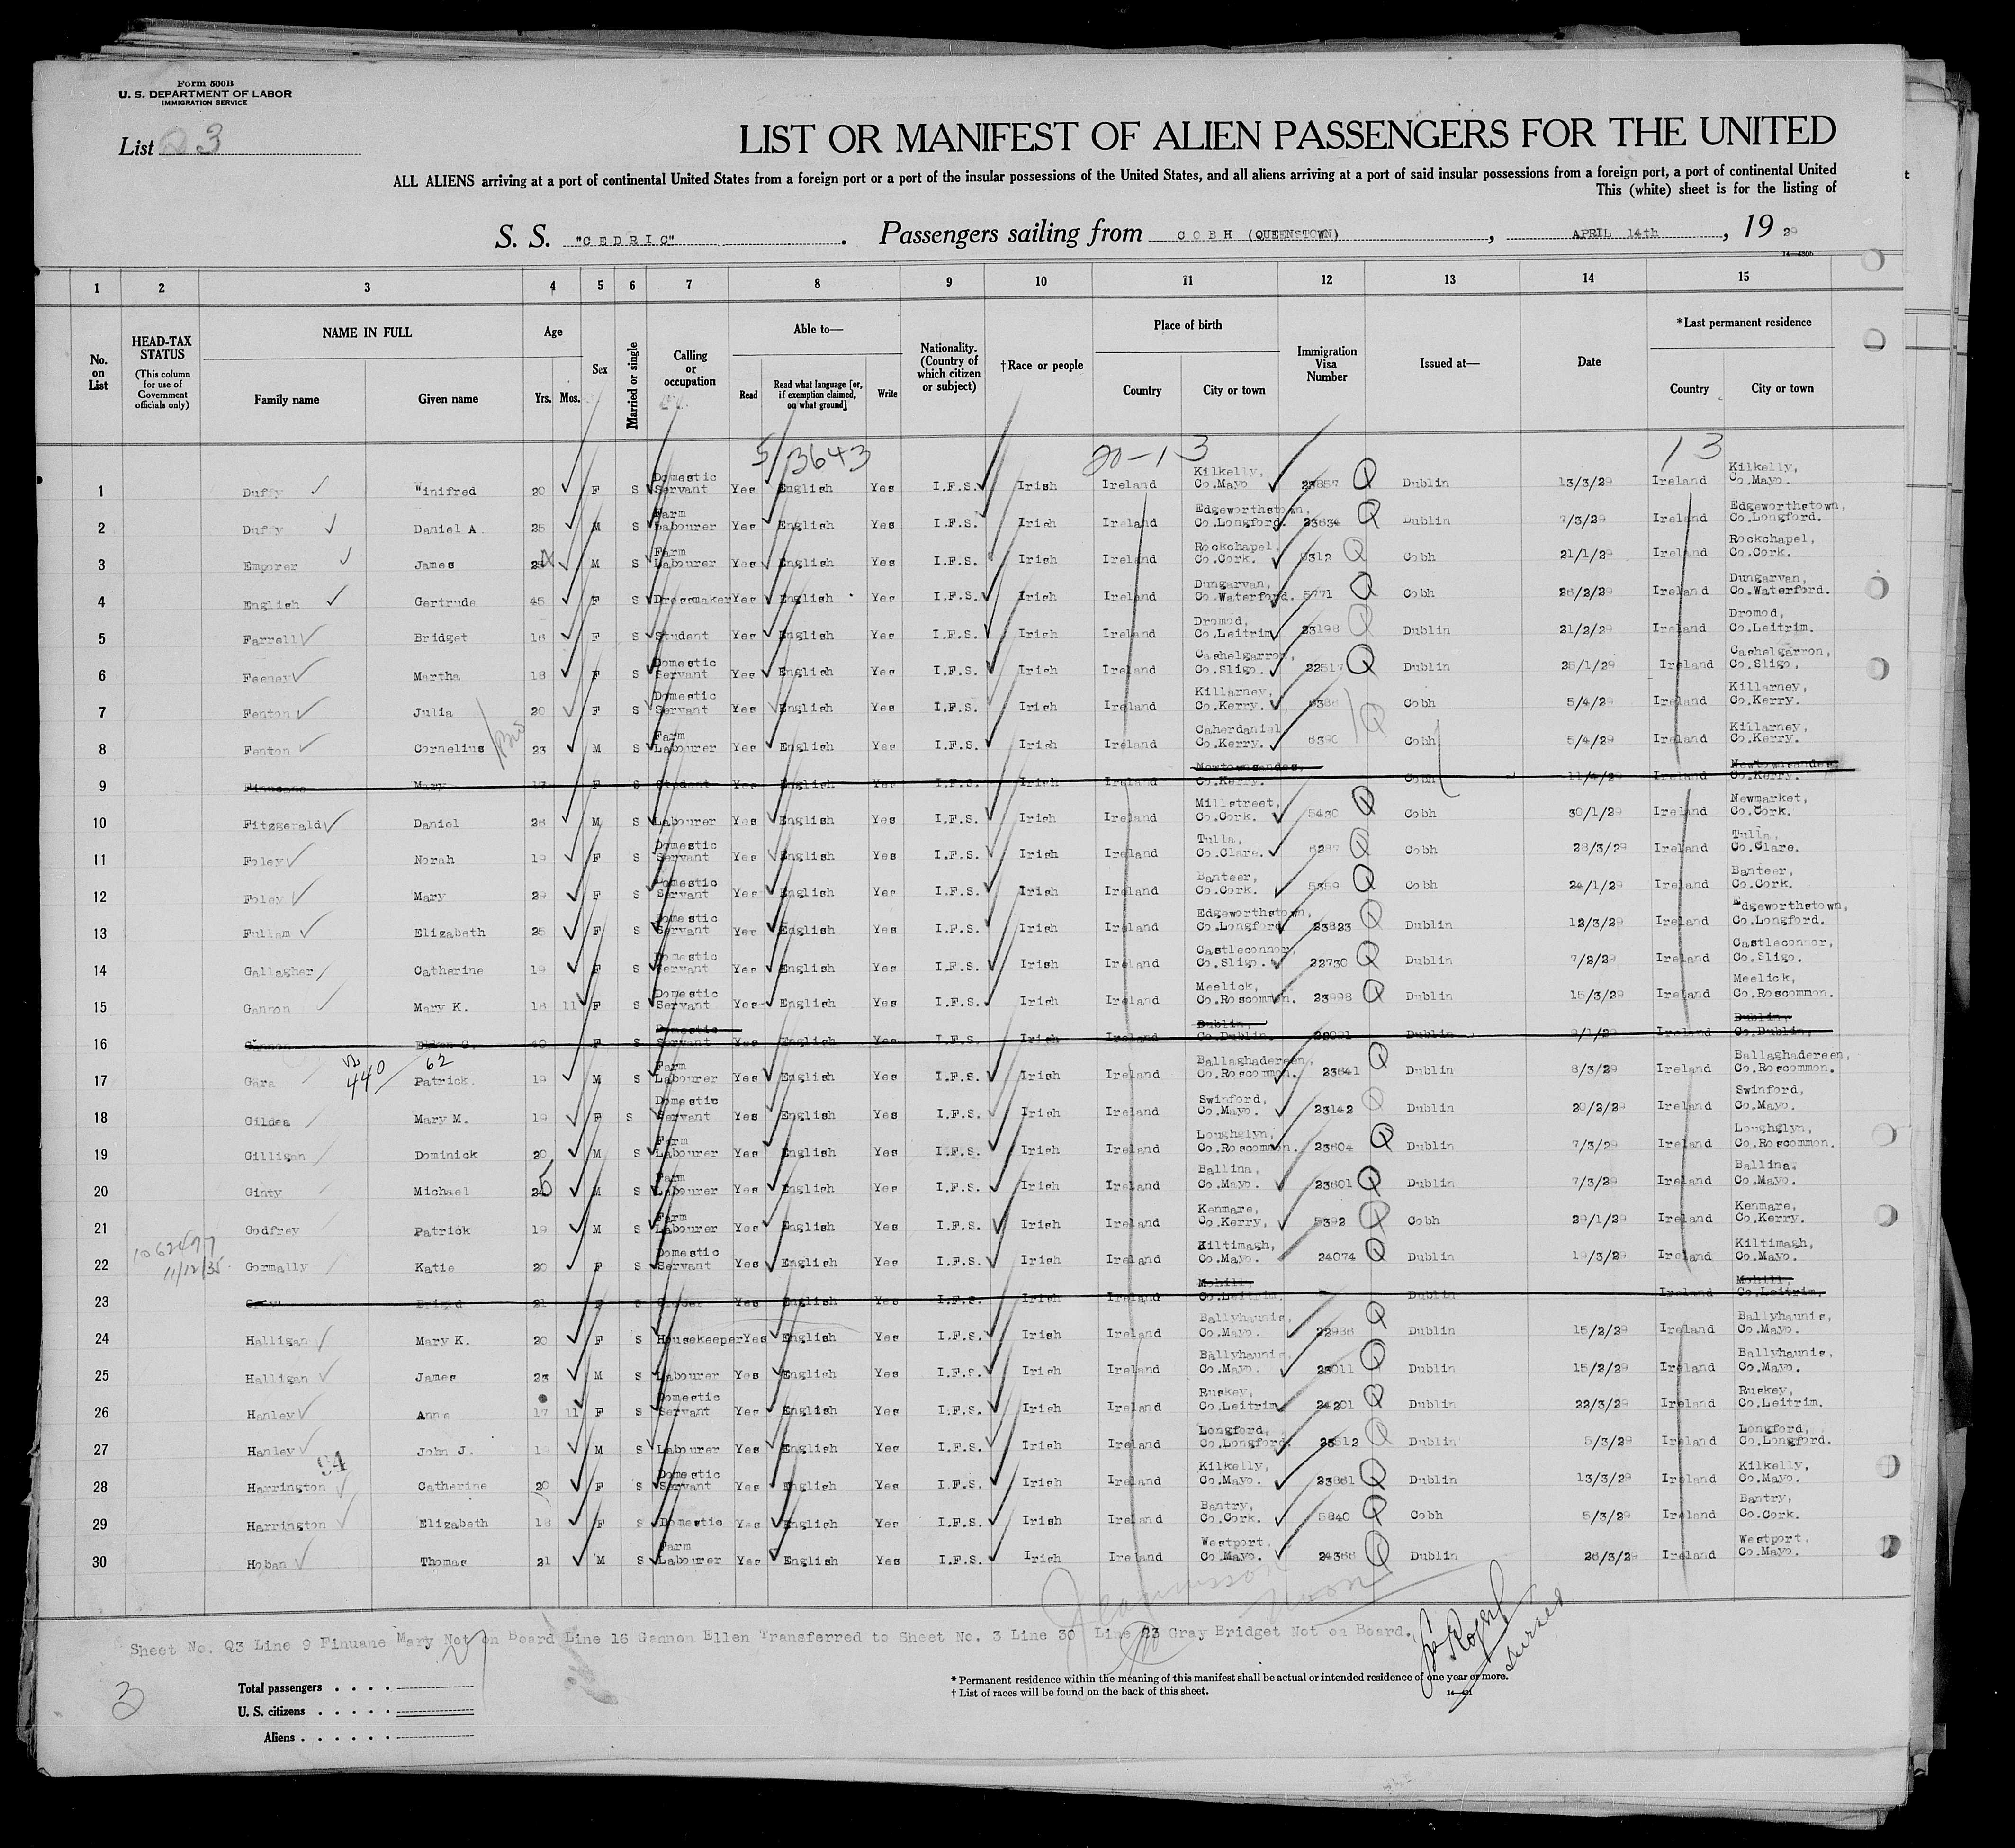 Form 500B
U. S. DEPARTMENT OF LABOR
IMMIGRATION SERVICE
List 3
LIST OR MANIFEST OF ALIEN PASSENGERS FOR THE UNITED
ALL ALIENS arriving at a port of continental United States from a foreign port or a port of the insular possessions of the United States, and all aliens arriving at a port of said insular possessions from a foreign port, a port of continental United
This (white) sheet is for the listing of
S. S. "CEDRIC" . Passengers sailing from COBH (QUEENSTOWN) , APRIL 14th , 19 29
14—430b
1 2 3 4 5 6 7 8 9 10 11 12 13 14 15
No. on List HEAD-TAX STATUS (This column for use of Government officials only) NAME IN FULL Family name Given name Age Yrs. Mos. Sex Married or single Calling or occupation Able to— Read Read what language [or, if exemption claimed, on what ground] Write Nationality. (Country of which citizen or subject) †Race or people Place of birth Country City or town Immigration Visa Number Issued at— Date *Last permanent residence Country City or town
5/3643 20-13 13
1 Duffy Winifred 20 F S Domestic Servant Yes English Yes I.F.S. Irish Ireland Kilkelly, Co.Mayo 23857 Q Dublin 13/3/29 Ireland Kilkelly, Co.Mayo.
2 Duffy Daniel A. 25 M S Farm Labourer Yes English Yes I.F.S. Irish Ireland Edgeworthstown, Co.Longford. 23634 Q Dublin 7/3/29 Ireland Edgeworthstown, Co.Longford.
3 Emporer James M S Farm Labourer Yes English Yes I.F.S. Irish Ireland Rockchapel, Co.Cork. 5312 Q Cobh 21/1/29 Ireland Rockchapel, Co.Cork.
4 English Gertrude 45 F S Dressmaker Yes English Yes I.F.S. Irish Ireland Dungarvan, Co.Waterford. 5771 Q Cobh 26/2/29 Ireland Dungarvan, Co.Waterford.
5 Farrell Bridget 16 F S Student Yes English Yes I.F.S. Irish Ireland Dromod, Co.Leitrim 23198 Q Dublin 21/2/29 Ireland Dromod, Co.Leitrim.
6 Feeney Martha 18 F S Domestic Servant Yes English Yes I.F.S. Irish Ireland Cashelgarron, Co.Sligo. 22517 Q Dublin 25/1/29 Ireland Cashelgarron, Co.Sligo.
7 Fenton Julia 20 F S Domestic Servant Yes English Yes I.F.S. Irish Ireland Killarney, Co.Kerry. 6386 Cobh 5/4/29 Ireland Killarney, Co.Kerry.
8 Fenton Cornelius 23 M S Farm Labourer Yes English Yes I.F.S. Irish Ireland Caherdaniel Co.Kerry. 6390 Q Cobh 5/4/29 Ireland Killarney, Co.Kerry.
9 Finucane Mary 17 F S Student Yes English Yes I.F.S. Irish Ireland Newtownsandes, Co.Kerry. Cobh 11/4/29 Ireland Newtownsandes Co.Kerry.
10 Fitzgerald Daniel 26 M S Labourer Yes English Yes I.F.S. Irish Ireland Millstreet, Co.Cork. 5430 Q Cobh 30/1/29 Ireland Newmarket, Co.Cork.
11 Foley Norah 19 F S Domestic Servant Yes English Yes I.F.S. Irish Ireland Tulla, Co.Clare. 6287 Q Cobh 28/3/29 Ireland Tulla, Co.Clare.
12 Foley Mary 29 F S Domestic Servant Yes English Yes I.F.S. Irish Ireland Banteer, Co.Cork. 5359 Q Cobh 24/1/29 Ireland Banteer, Co.Cork.
13 Fullam Elizabeth 25 F S Domestic Servant Yes English Yes I.F.S. Irish Ireland Edgeworthstown, Co.Longford 23823 Q Dublin 12/3/29 Ireland Edgeworthstown, Co.Longford.
14 Gallagher Catherine 19 F S Domestic Servant Yes English Yes I.F.S. Irish Ireland Castleconnor, Co.Sligo. 22730 Q Dublin 7/2/29 Ireland Castleconnor, Co.Sligo.
15 Gannon Mary K. 16 11 F S Domestic Servant Yes English Yes I.F.S. Irish Ireland Meelick, Co.Roscommon. 23998 Q Dublin 15/3/29 Ireland Meelick, Co.Roscommon.
16 Gannon Ellen C. 40 F S Domestic Servant Yes English Yes I.F.S. Irish Ireland Dublin, Co.Dublin. 22091 Dublin 9/1/29 Ireland Dublin, Co.Dublin.
440 62
17 Gara Patrick. 19 M S Farm Labourer Yes English Yes I.F.S. Irish Ireland Ballaghadereen, Co.Roscommon. 23641 Q Dublin 8/3/29 Ireland Ballaghadereen, Co.Roscommon.
18 Gildea Mary M. 19 F S Domestic Servant Yes English Yes I.F.S. Irish Ireland Swinford, Co.Mayo. 23142 Q Dublin 20/2/29 Ireland Swinford, Co.Mayo.
19 Gilligan Dominick 20 M S Farm Labourer Yes English Yes I.F.S. Irish Ireland Loughglyn, Co.Roscommon. 23604 Q Dublin 7/3/29 Ireland Loughglyn, Co.Roscommon.
20 Ginty Michael 25 M S Farm Labourer Yes English Yes I.F.S. Irish Ireland Ballina, Co.Mayo. 23601 Q Dublin 7/3/29 Ireland Ballina, Co.Mayo.
21 Godfrey Patrick 19 M S Farm Labourer Yes English Yes I.F.S. Irish Ireland Kenmare, Co.Kerry, 5392 Q Cobh 29/1/29 Ireland Kenmare, Co.Kerry.
22 11/12/35 Gormally Katie 20 F S Domestic Servant Yes English Yes I.F.S. Irish Ireland Kiltimagh, Co.Mayo. 24074 Q Dublin 19/3/29 Ireland Kiltimagh, Co.Mayo.
23 Gray Brigid 21 F S Yes English Yes I.F.S. Irish Ireland Mohill, Co.Leitrim. Dublin Ireland Mohill, Co.Leitrim.
24 Halligan Mary K. 20 F S Housekeeper Yes English Yes I.F.S. Irish Ireland Ballyhaunis, Co.Mayo. 22986 Q Dublin 15/2/29 Ireland Ballyhaunis, Co.Mayo.
25 Halligan James 23 M S Labourer Yes English Yes I.F.S. Irish Ireland Ballyhaunis Co.Mayo. 23011 Q Dublin 15/2/29 Ireland Ballyhaunis, Co.Mayo.
26 Hanley Anne 17 11 F S Domestic Servant Yes English Yes I.F.S. Irish Ireland Ruskey, Co.Leitrim 24201 Q Dublin 22/3/29 Ireland Ruskey, Co.Leitrim.
27 Hanley John J. 19 M S Labourer Yes English Yes I.F.S. Irish Ireland Longford, Co.Longford. 23512 Q Dublin 5/3/29 Ireland Longford, Co.Longford.
94
28 Harrington Catherine 20 F S Domestic Servant Yes English Yes I.F.S. Irish Ireland Kilkelly, Co.Mayo. 23861 Q Dublin 13/3/29 Ireland Kilkelly, Co.Mayo.
29 Harrington Elizabeth 18 F S Domestic Yes English Yes I.F.S. Irish Ireland Bantry, Co.Cork. 5840 Q Cobh 5/3/29 Ireland Bantry, Co.Cork.
30 Hoban Thomas 21 M S Farm Labourer Yes English Yes I.F.S. Irish Ireland Westport, Co.Mayo. 24366 Q Dublin 26/3/29 Ireland Westport, Co.Mayo.
Sheet No. Q3 Line 9 Finuane Mary Not on Board Line 16 Gannon Ellen Transferred to Sheet No. 3 Line 30 Line 23 Gray Bridget Not on Board.
3
Total passengers . . . .
U. S. citizens . . . . .
Aliens . . . . . .
* Permanent residence within the meaning of this manifest shall be actual or intended residence of one year or more.
† List of races will be found on the back of this sheet.
14—431